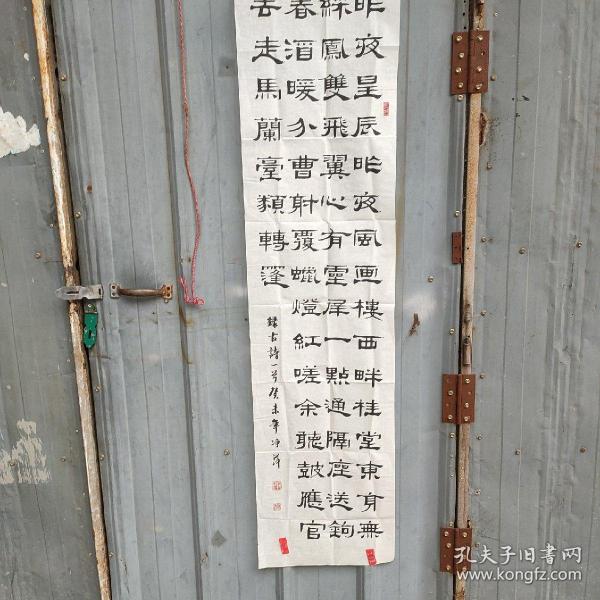 昨夜星辰昨夜風画樓西畔桂堂東身無
綵鳳雙飛翼心有靈犀一點通隔座送鉤
春酒暖分曹射覆蠟燈紅嗟余聽鼓應官
去走馬蘭臺類轉蓬
録古詩一首癸未年
孔夫子旧書网
www.kongfz.com